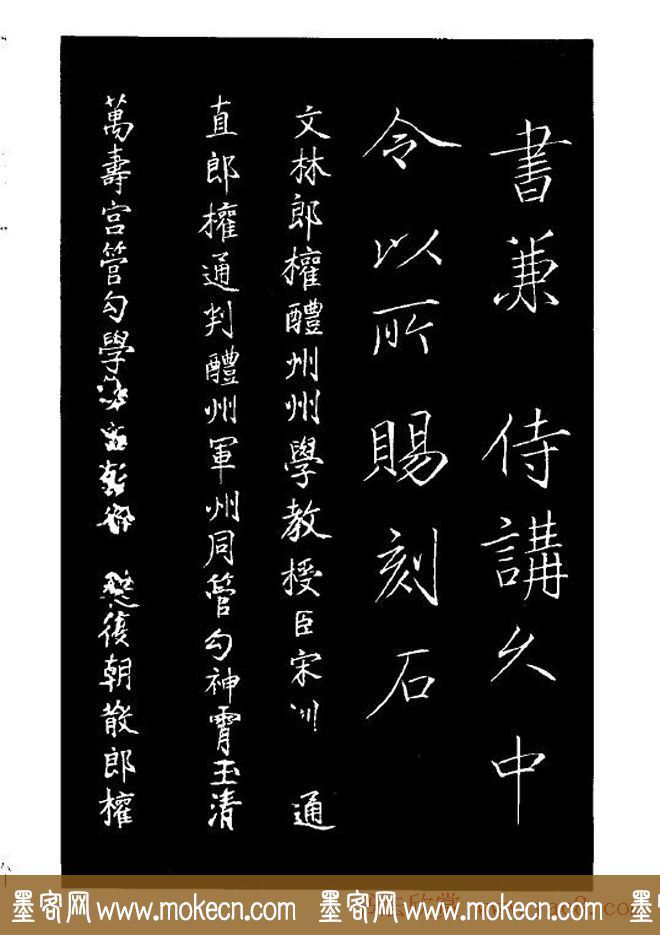 書兼 侍講久中
令以所賜刻石
文林郎權醴州州學教授臣宋 通
直郎權通判醴州軍州同管勾神霄玉清
萬壽宫管勾學 復朝散郎權
墨客网 www.mokecn.com 墨客网 www.mokecn.com 墨